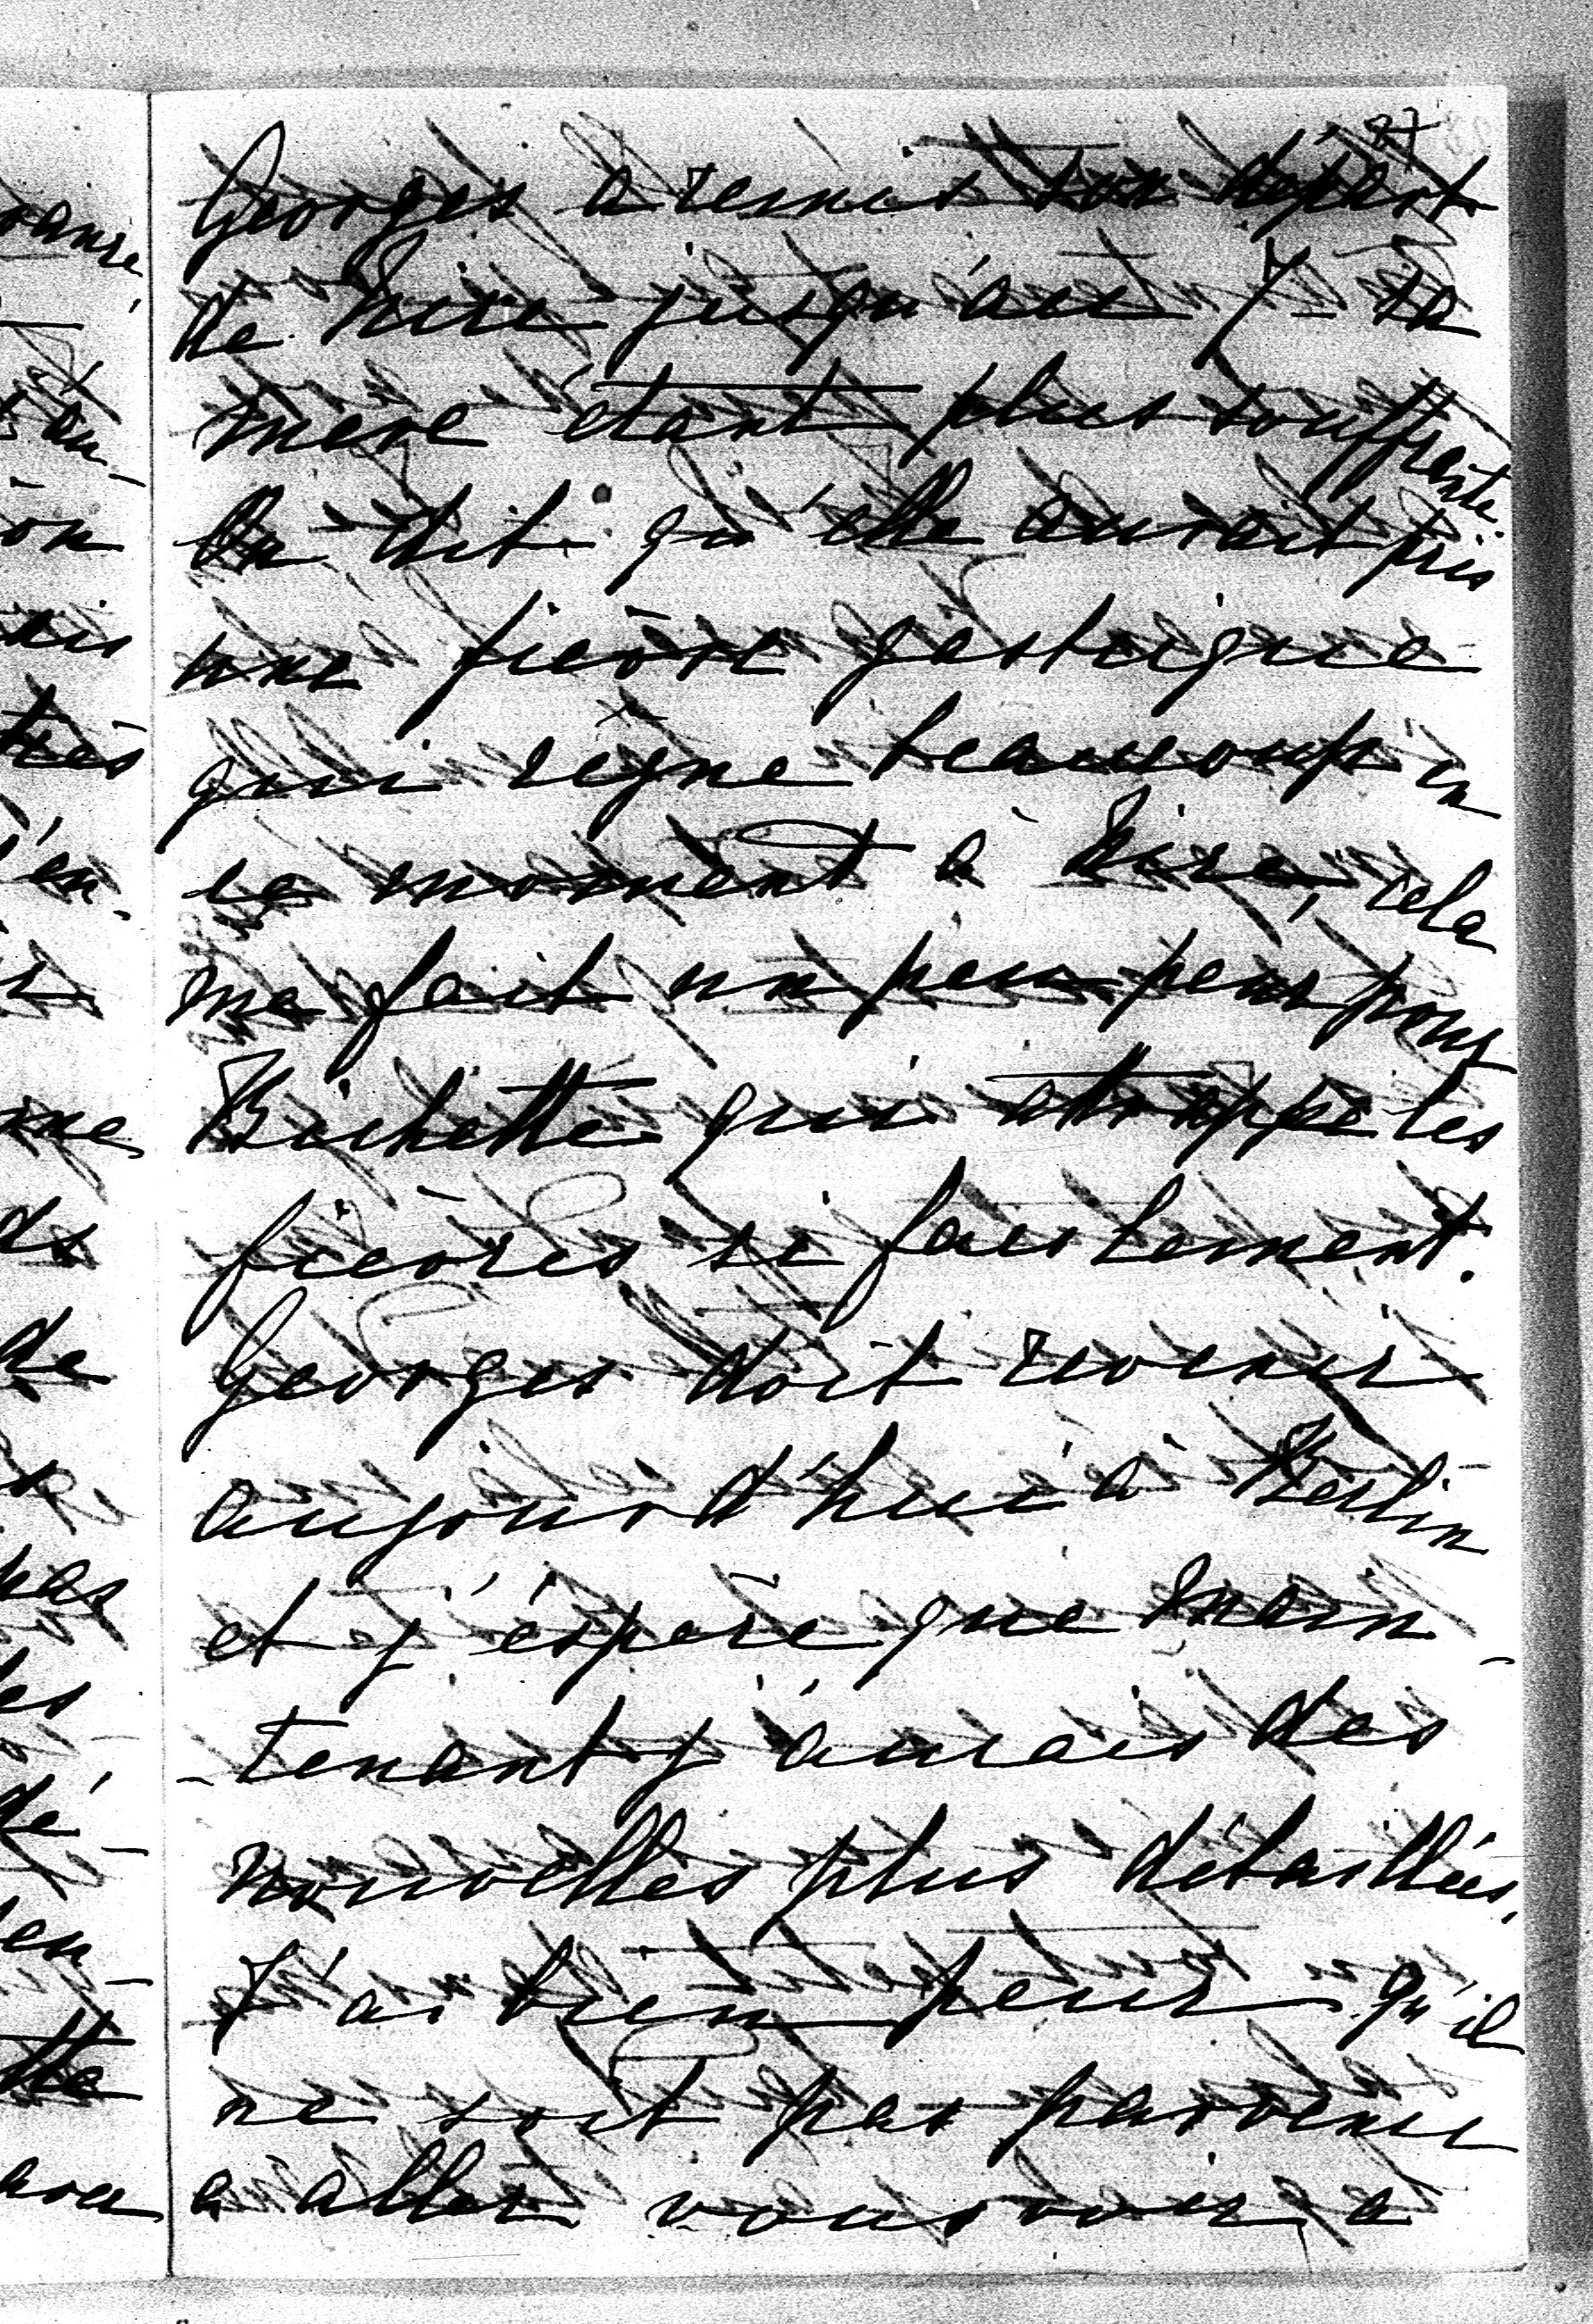 27
Georges a remis son départ
de Nice jusqu'au 7 - sa
mère étant plus souffrante.
On dit qu'elle aurait pris
une fièvre gastrique
qui règne beaucoup en
ce moment à Nice, cela
me fait un peu peur pour
Bichette qui attrappe les
fièvres si facilement.
Georges doit revenir
aujourd'hui à Berlin
et j'éspère que main-
-tenant j'aurais des
nouvelles plus détaillées.
J'ai bien peur qu'il
ne soit pas parvenu
à aller vous voir a